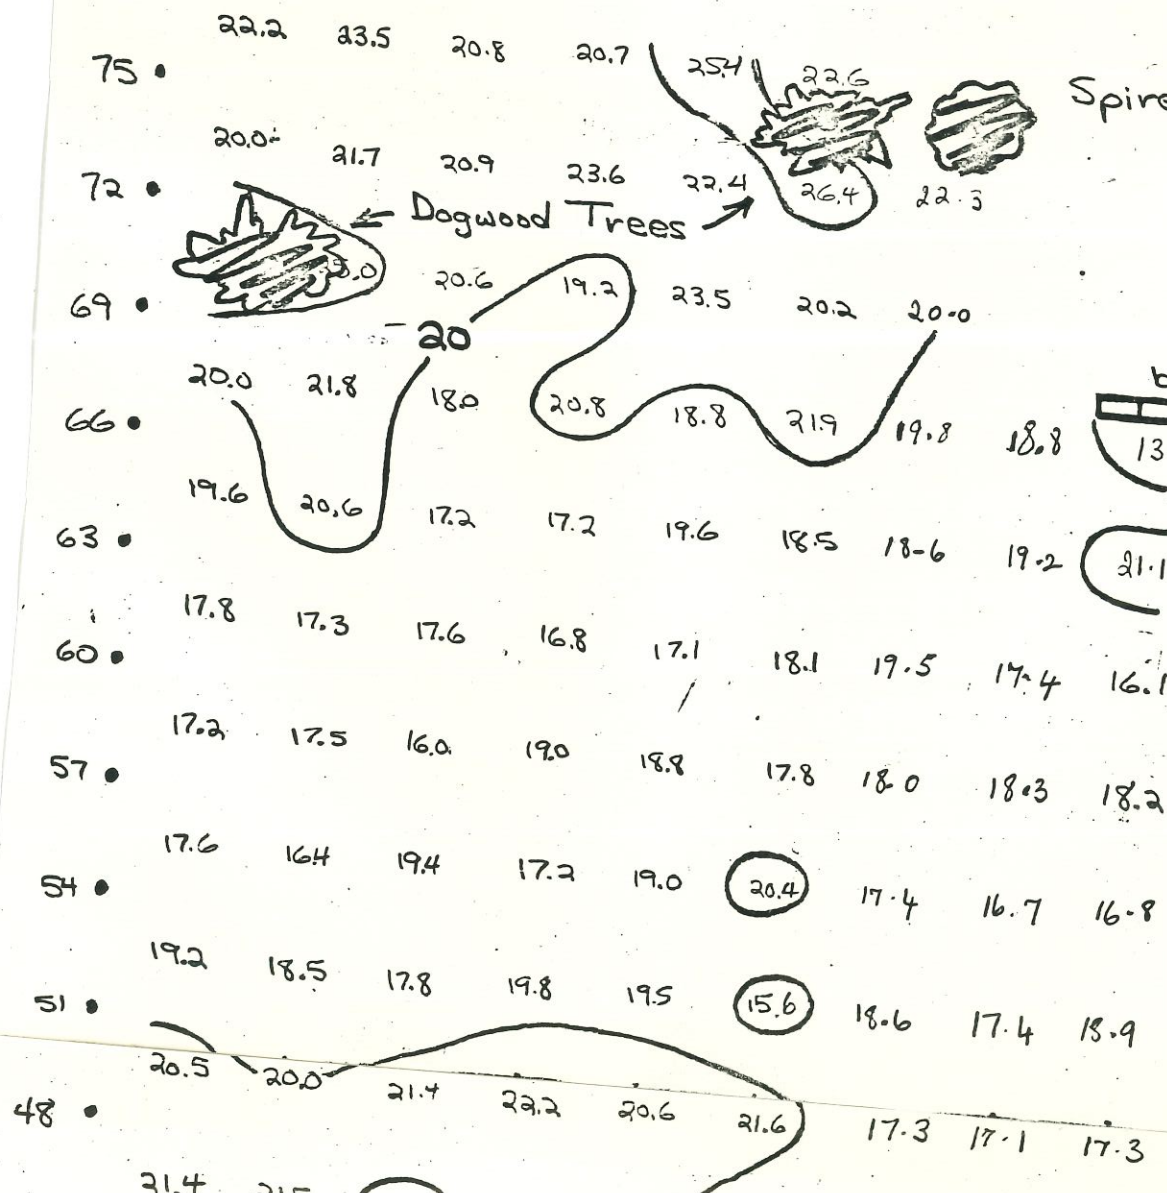 22.2 23.5 20.8 20.7 25.4 22.6
75 • Spire
20.0 21.7 20.9 23.6 22.4 26.4 22.3
72 •
Dogwood Trees
20.6 19.2 23.5 20.2 20.0
69 •
20
20.0 21.8 18.0 20.8 18.8 21.9 19.8 18.8 13
66 •
19.6 20.6 17.2 17.2 19.6 18.5 18.6 19.2 21.1
63 •
17.8 17.3 17.6 16.8 17.1 18.1 19.5 17.4 16.1
60 •
17.2 17.5 16.0 19.0 18.8 17.8 18.0 18.3 18.2
57 •
17.6 16.4 19.4 17.2 19.0 20.4 17.4 16.7 16.8
54 •
19.2 18.5 17.8 19.8 19.5 15.6 18.6 17.4
51 •
20.5 20.0 21.4 22.2 20.6 21.6 17.3 17.1 17.3
48 •
21.4